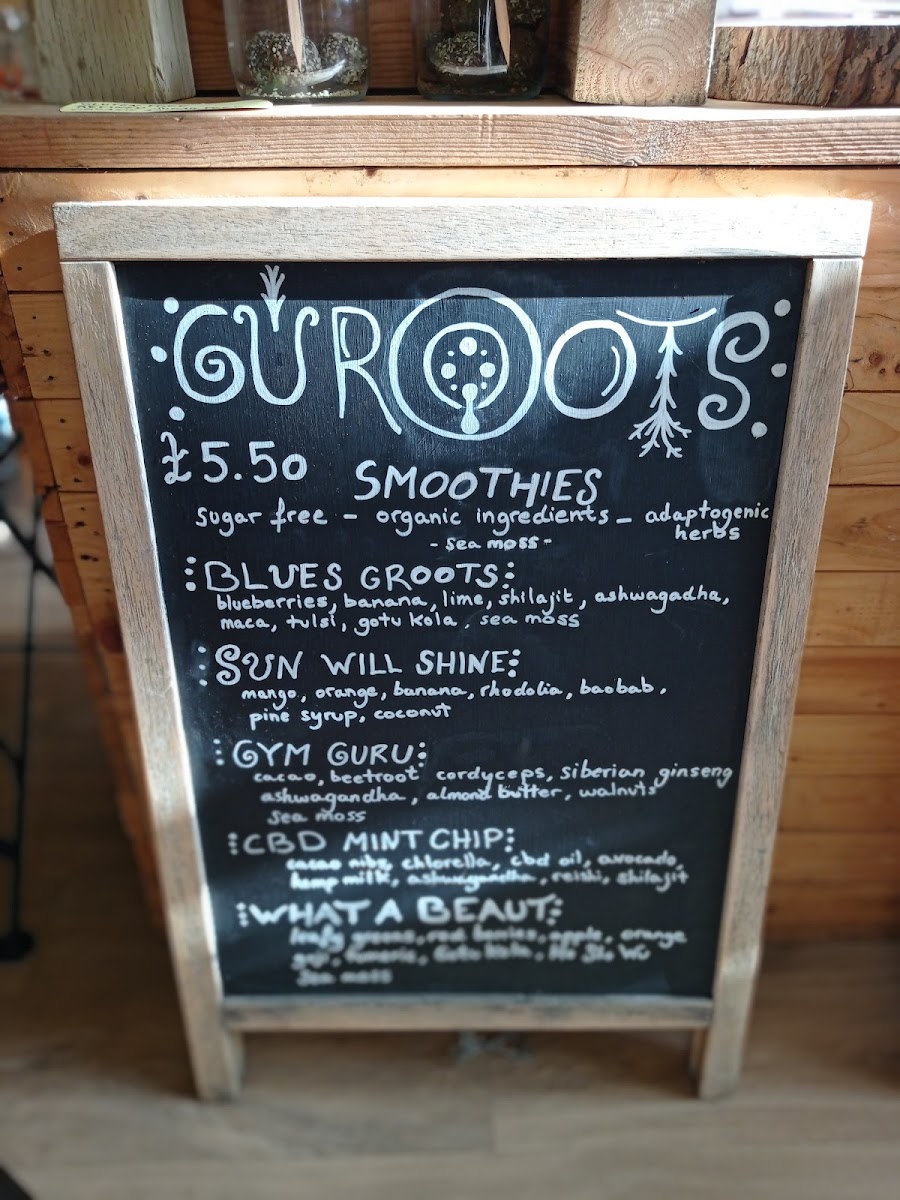 GUROOTS
£5.50
SMOOTHIES
sugar free - organic ingredients - adaptogenic
herbs
- sea moss -
BLUES GROOTS:
blueberries, banana, lime, shilajit, ashwagadha,
maca, tulsi, gotu kola, sea moss
SUN WILL SHINE:
mango, orange, banana, rhodolia, baobab,
pine syrup, coconut
GYM GURU:
cacao, beetroot cordyceps, siberian ginseng
ashwagandha, almond butter, walnuts
sea moss
CBD MINT CHIP:
cacao nibz, chlorella, cbd oil, avocado,
hemp milk, ashwagandha, reishi, shilajit
WHAT A BEAUT:
leafy greens, red berries, apple, orange
goji, tumeric, Gotu Kola, Ho Sho Wu
Sea moss